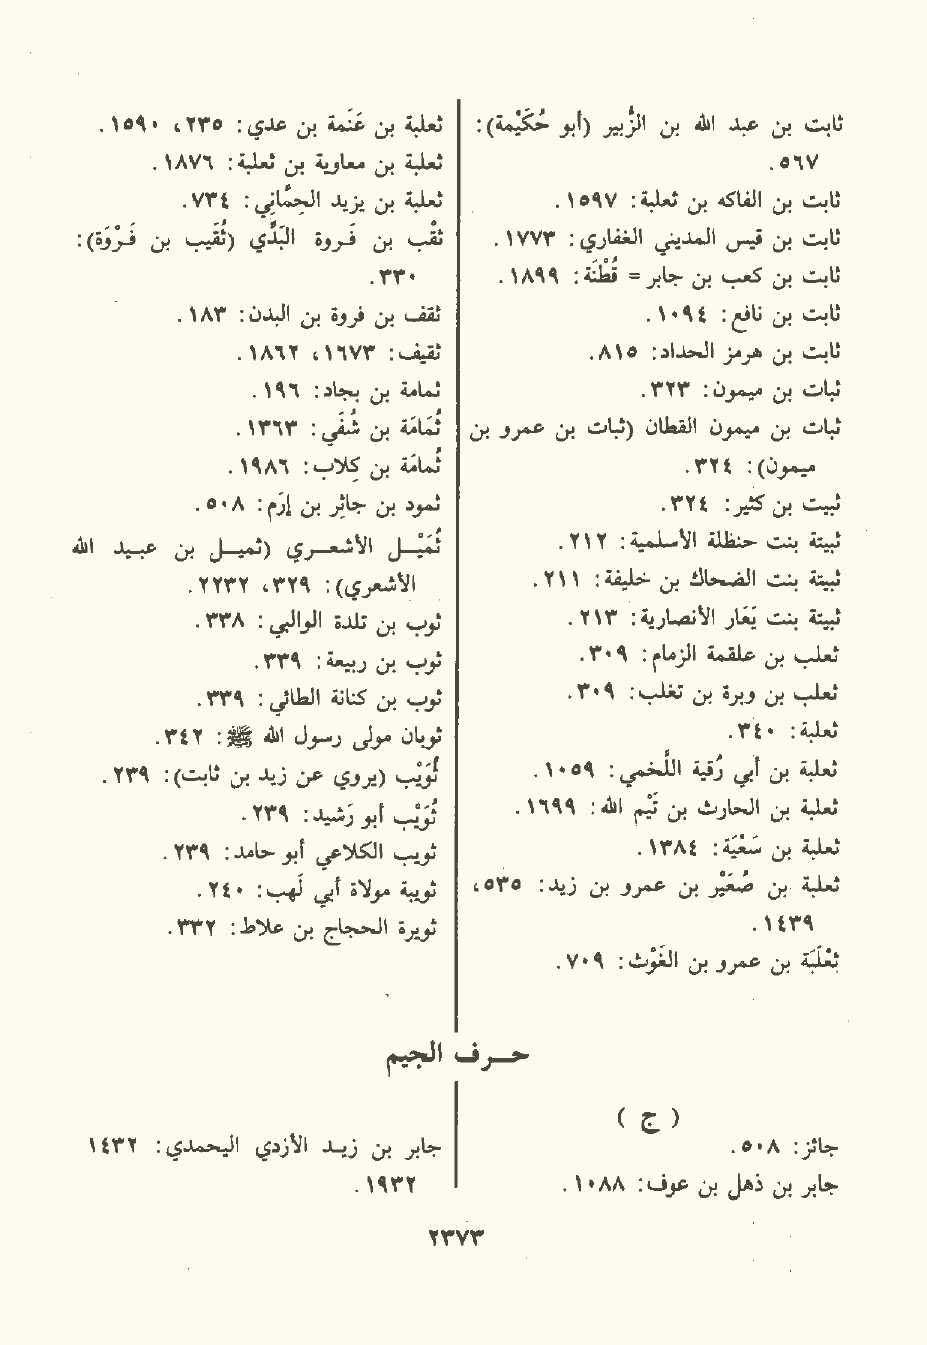 ثابت بن عبد الله بن الزُّبير (أبو حُكَيْمة):
٥٦٧.
ثابت بن الفاكه بن ثعلبة: ١٥٩٧.
ثابت بن قيس المديني الغفاري: ١٧٧٣.
ثابت بن كعب بن جابر = قُطْنَة: ١٨٩٩.
ثابت بن نافع: ١٠٩٤.
ثابت بن هرمز الحداد: ٨١٥.
ثبات بن ميمون: ٣٢٣.
ثبات بن ميمون القطان (ثبات بن عمرو بن
ميمون): ٣٢٤.
ثبيت بن كثير: ٣٢٤.
ثبيتة بنت حنظلة الأسلمية: ٢١٢.
ثبيتة بنت الضحاك بن خليفة: ٢١١.
ثبيتة بنت يَعَار الأنصارية: ٢١٣.
ثعلب بن علقمة الزمام: ٣٠٩.
ثعلب بن وبرة بن تغلب: ٣٠٩.
ثعلبة: ٣٤٠.
ثعلبة بن أبي رُقية اللَّخمي: ١٠٥٩.
ثعلبة بن الحارث بن تَيْم الله: ١٦٩٩.
ثعلبة بن سَعْيَة: ١٣٨٤.
ثعلبة بن صُعَيْر بن عمرو بن زيد: ٥٣٥،
١٤٣٩.
ثَعْلَبَة بن عمرو بن الغَوْث: ٧٠٩.
ثعلبة بن عَنَمة بن عدي: ٢٣٥، ١٥٩٠.
ثعلبة بن معاوية بن ثعلبة: ١٨٧٦.
ثعلبة بن يزيد الحِمَّانِي: ٧٣٤.
ثقْب بن فَروة البَدِّي (ثُقَيب بن فَرْوَة):
٣٣٠.
ثقف بن فروة بن البدن: ١٨٣.
ثقيف: ١٦٧٣، ١٨٦٢.
ثمامة بن بجاد: ١٩٦.
ثُمَامَة بن شُفَي: ١٣٦٣.
ثُمامَة بن كِلاب: ١٩٨٦.
ثمود بن جاثِر بن إرَم: ٥٠٨.
ثُمَيْل الأشعري (ثميل بن عبيد الله
الأشعري): ٣٢٩، ٢٢٣٢.
ثوب بن تلدة الوالبي: ٣٣٨.
ثوب بن ربيعة: ٣٣٩.
ثوب بن كنانة الطائي: ٣٣٩.
ثوبان مولى رسول الله ﷺ: ٣٤٢.
ثُوَيْب (يروي عن زيد بن ثابت): ٢٣٩.
ثُوَيْب أبو رَشيد: ٢٣٩.
ثويب الكلاعي أبو حامد: ٢٣٩.
ثويبة مولاة أبي لَهب: ٢٤٠.
ثويرة بن الحجاج بن علاط: ٣٣٢.
حرف الجيم
( ج )
جائز: ٥٠٨.
جابر بن ذهل بن عوف: ١٠٨٨.
جابر بن زيد الأزدي اليحمدي: ١٤٣٢
١٩٣٢.
٢٣٧٣